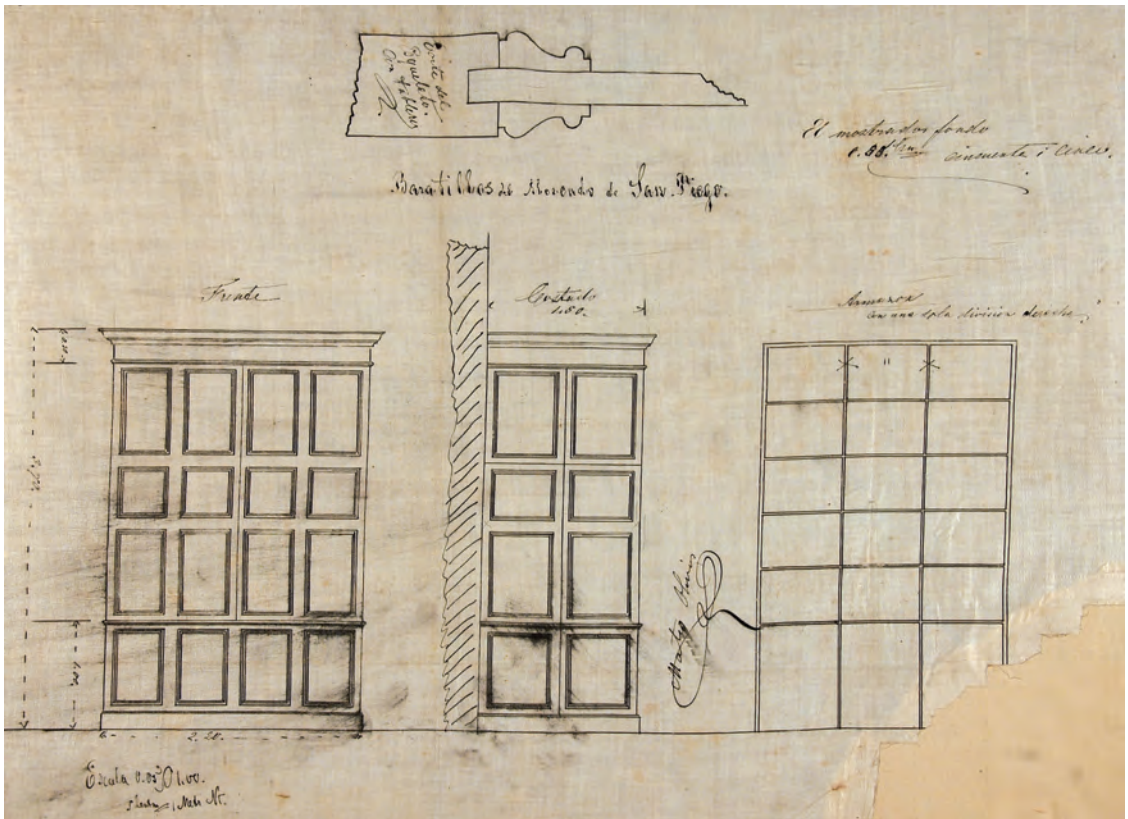 Corte del
Esqueleto.
Con tableros
El mostrador fondo
0.55. cincuenta i cinco.
Baratillos de Mercado de San. Diego.
Frente
Costado
1.50.
Armazon
con una sola division derecha
"
1.00
2.20.
Mateo
Escala 0.05 1.00.